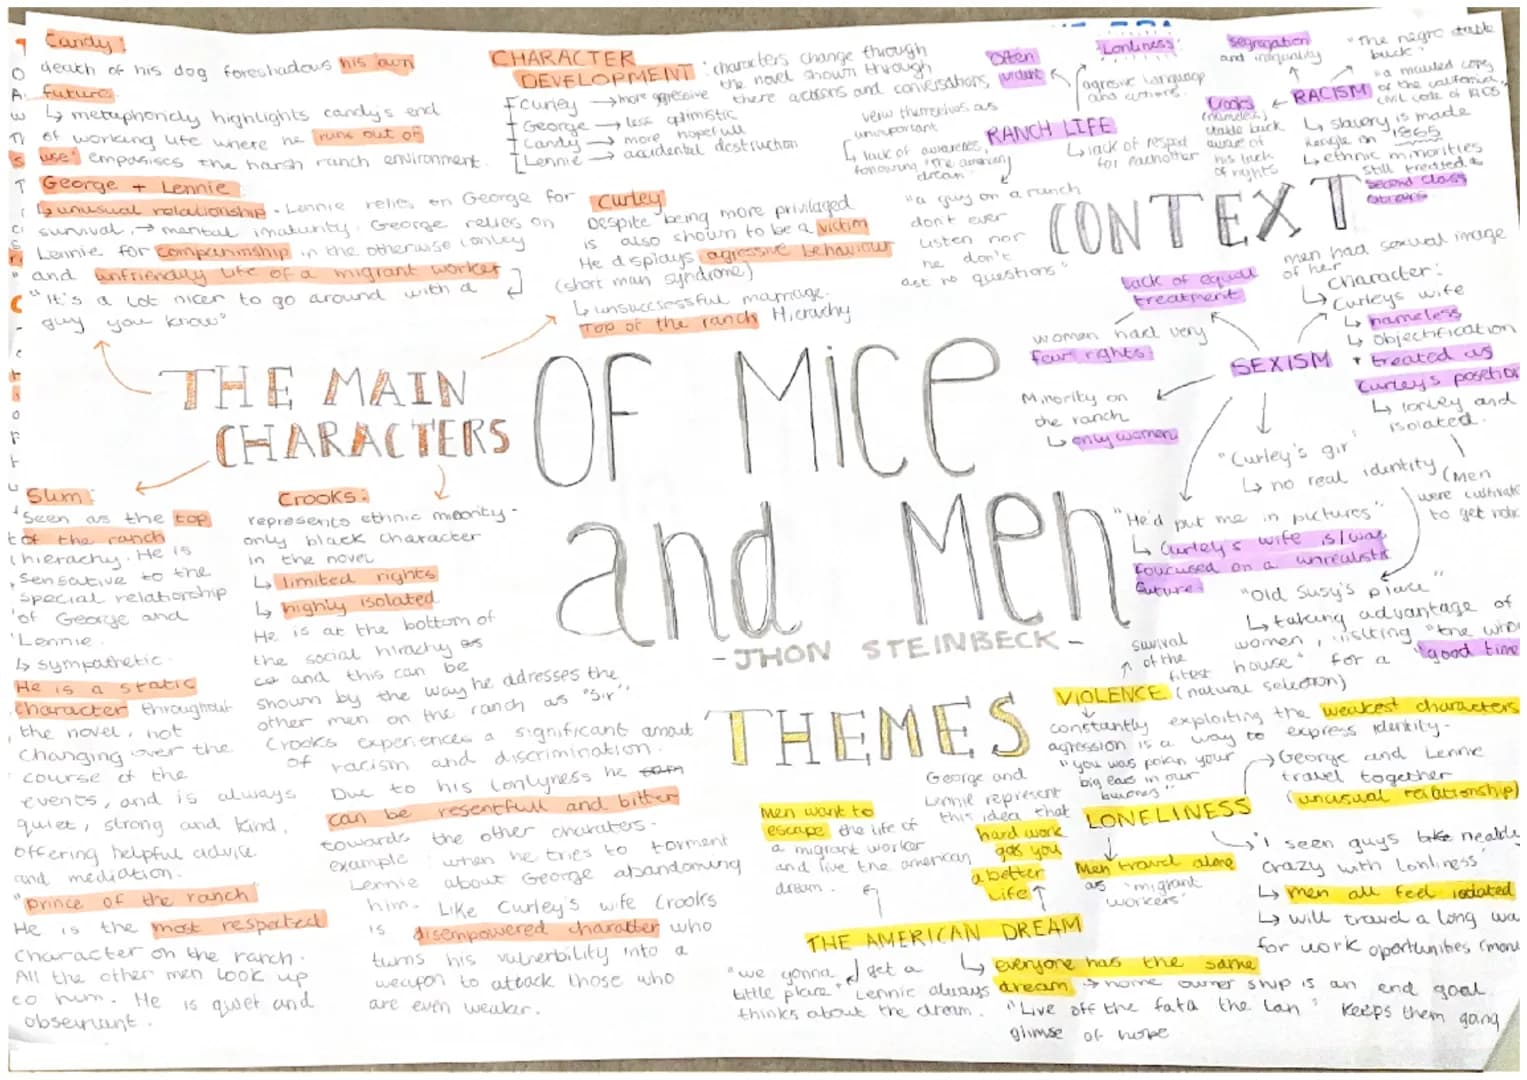 Candy:
death of his dog foreshadows his own
future.
↳ metaphoricly highlights candy's end
of working life where he 'runs out of
use' empasises the harsh ranch environment.
George + Lennie
↳ unusual relationship - Lennie relies on George for
survival, → mental imaturity. George relies on
Lennie for companinship in the otherwise lonley
and unfriendly life of a migrant worker
"It's a lot nicer to go around with a
guy you know"
CHARACTER
DEVELOPMENT : characters change through
the novel shown through
there actions and conversations,
Curley → more aggressive
George → less optimistic
Candy → more hopefull
Lennie → accidental destruction
Curley
Despite being more privilaged
is also shown to be a victim
He displays agressive behaviour
(short man syndrome)
↳ unsuccsessful marriage.
Top of the ranch Hierachy
THE MAIN
CHARACTERS
Slim:
Seen as the top
of the ranch
hierachy. He is
sensative to the
special relationship
of George and
Lennie.
↳ sympathetic.
He is a static
character throughout
the novel, not
changing over the
course of the
events, and is always
quiet, strong and kind,
offering helpful advice
and mediation.
"prince of the ranch"
He is the most respected
character on the ranch.
All the other men look up
to him. He is quiet and
observant.
Crooks:
represents ethnic minority -
only black character
in the novel
↳ limited rights
↳ highly isolated
He is at the bottom of
the social hirachy
and this can be
shown by the way he adresses the
other men on the ranch as "Sir".
Crooks experiences a significant amout
of racism and discrimination.
Due to his lonlyness he
can be resentfull and bitter
towards the other charaters.
example : when he tries to torment
Lennie about George abandoming
him. Like Curley's wife Crooks
is disempowered charatter who
turns his vulnerbility into a
weapon to attack those who
are even weaker.
OF MICE
and Men
- JHON STEINBECK -
CONTEXT
RANCH LIFE
Often
violent
Lonliness
agresive language
and actions.
view themselves as
unimportant
↳ lack of awareness,
following "the american
dream"
↳ lack of respect
for eachother
"a guy on a ranch
don't ever
listen nor
he don't
ast no questions"
RACISM
segregation
and inequality
"The negro stable
buck"
"a mauled copy
of the california
civil code of 1905"
Crooks
(nameless)
stable buck
aware of
his lack
of rights
↳ slavery is made
illegle in 1865
↳ ethnic minorities
still treated as
second class
SEXISM
lack of equall
treatment
women had very
few rights.
Minority on
the ranch
↳ only women
men had sexual image
of her
character:
↳ Curleys wife
↳ nameless
↳ objectification
+ treated as
Curley's posetion
↳ lonley and
isolated.
"Curley's girl"
↳ no real identity
(Men
were
to get
"He'd put me in pictures"
↳ Curley's wife is/was
foucused on a unrealistic
future.
"Old Susy's place"
↳ taking advantage of
women, visiting "the
house" for a "good time
THEMES
VIOLENCE (natural selection)
suvival
of the
fittest
constantly exploiting the weakest characters
agression is a way to express identity.
"you was pokin your
big ears in our
LONELINESS
→ George and Lennie
travel together
(unusual relationship)
Men travel alone
as 'migrant
workers'
'I seen guys nearly
crazy with lonliness'
↳ men all feel isolated
↳ will travel a long wa
for work oportunities (mone
THE AMERICAN DREAM
Men want to
escape the life of
a migrant worker
and live the american
dream.
George and
Lennie represent
this idea that
hard work
gets you
a better
life
"we gonna get a
little place" Lennie always
thinks about the dream.
↳ everyone has the same
dream → home owner ship is an end goal
"Live off the fata the lan" keeps them gong
glimse of hope